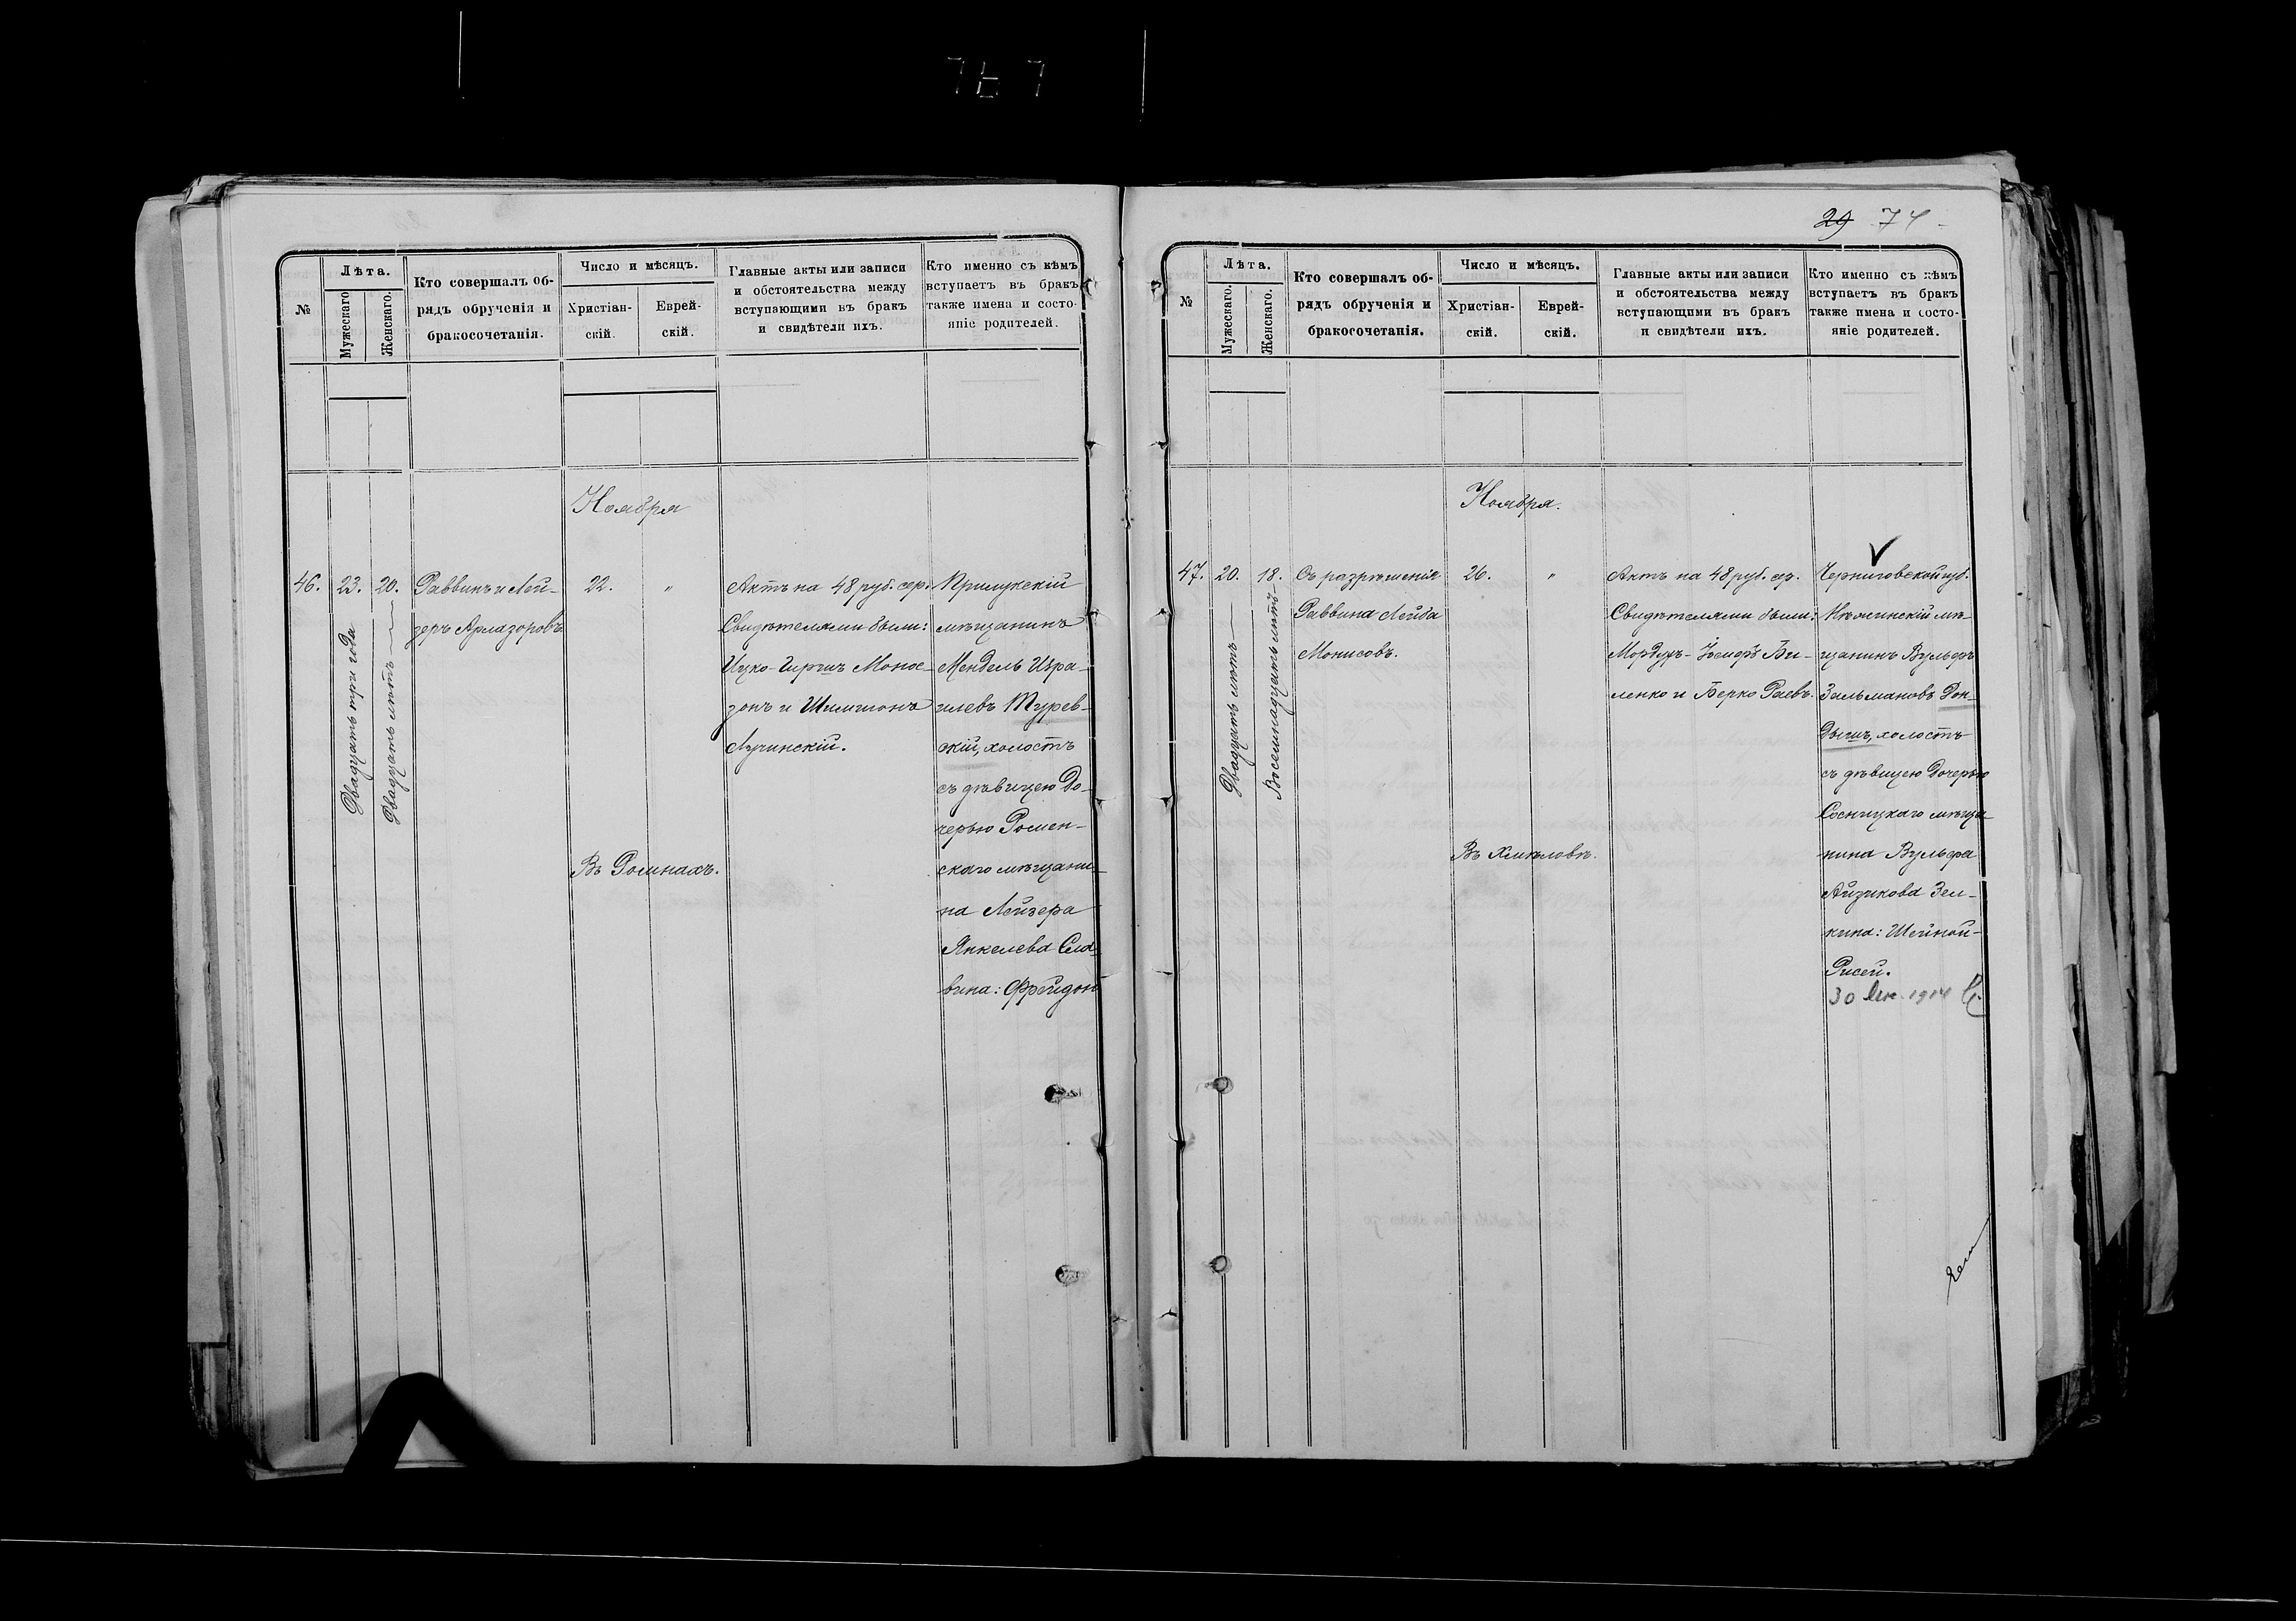 №
Лѣта.
Мужескаго
Женскаго.
Кто совершалъ об-
рядъ обрученія и
бракосочетанія.
Число и мѣсяцъ.
Христіан-
скій.
Еврей-
скій.
Главные акты или записи
и обстоятельства между
вступающими въ бракъ
и свидѣтели ихъ.
Кто именно съ кѣмъ
вступаетъ въ бракъ
также имена и состо-
яніе родителей.
Ноября
46.
23.
Двадцать три года
20.
Двадцать лѣтъ
Раввинъ и Лей-
зеръ Арлазоровъ
22.
"
Въ Ромнахъ.
Актъ на 48 руб. сер.
Свидѣтелями были:
Ицко-Гиршъ Монос-
зонъ и Шимшонъ
Лучинскій.
Прилукскій
мѣщанинъ
Мендель Изра-
илевъ Турев-
скій, холостъ
съ дѣвицею До-
черью Ромен-
скаго мѣщани-
на Лейзера
Янкелева Сла-
вина: Фрейдой
29 74
№
Лѣта.
Мужескаго.
Женскаго.
Кто совершалъ об-
рядъ обрученія и
бракосочетанія.
Число и мѣсяцъ.
Христіан-
скій.
Еврей-
скій.
Главные акты или записи
и обстоятельства между
вступающими въ бракъ
и свидѣтели ихъ.
Кто именно съ кѣмъ
вступаетъ въ бракъ
также имена и состо-
яніе родителей.
Ноября.
47.
20.
Двадцать лѣтъ
18.
Восемнадцать лѣтъ
Съ разрѣшенія
Раввина Лейба
Монисовъ.
26.
"
Въ Хмѣловѣ.
Актъ на 48 руб. сер.
Свидѣтелями были:
Мордухъ- Би-
ленко и Берко Раевъ.
Черниговской губ.
Нѣжинскій мѣ-
щанинъ Вульфъ
Зальмановъ Дон-
дышъ, холостъ
съ дѣвицею Дочерью
Сосницкаго мѣща-
нина Вульфа
Айзикова Зел-
кина: Шейной-
Рисей.
30 1914